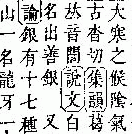 大寒之候陰氣
古沓切集韻葛
𠀤音閤說文白
名出善銀又
論銀有十
山一名龍牙一